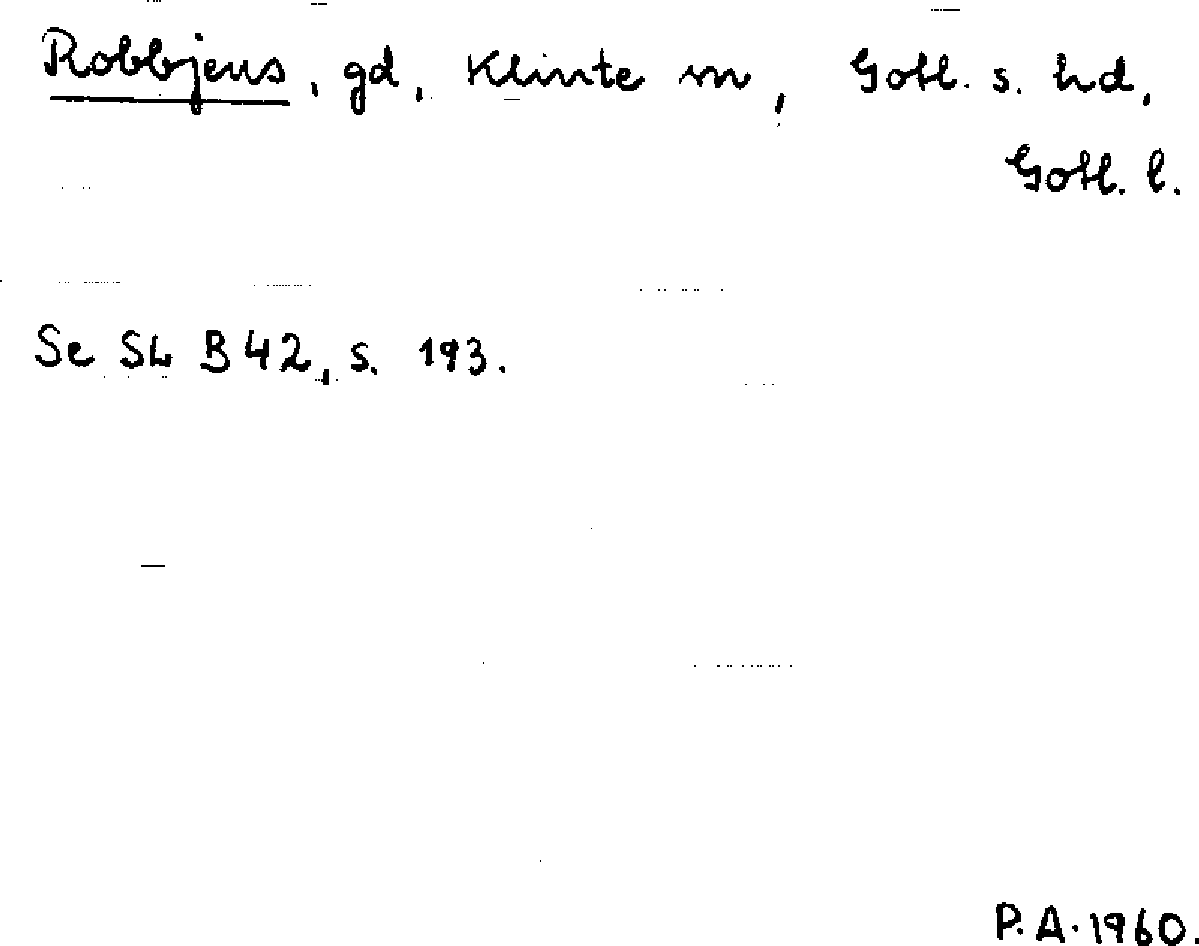 Robbjens, gd, Klinte sn, Gotl. s. hd,
Gotl. l.
Se SL B 42, s. 193.
P. A. 1960.